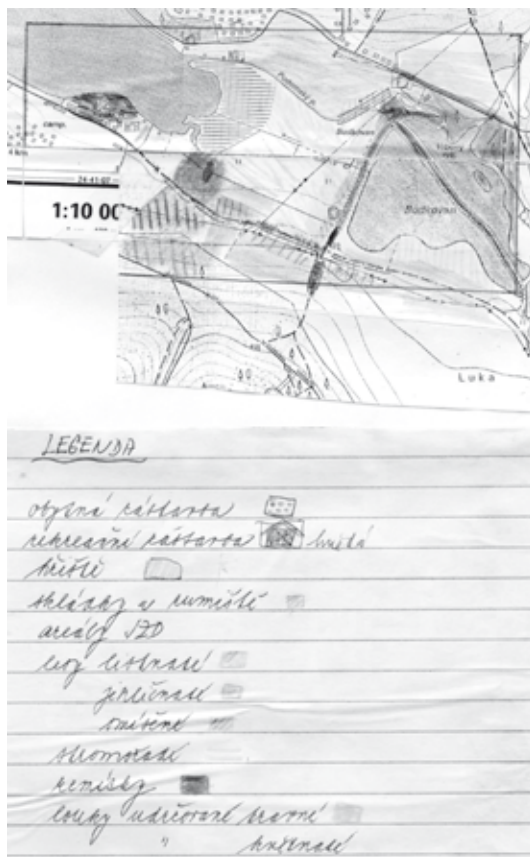 camp.
24-41-07
1:10 00
Luka
LEGENDA
obytná zástavba
rekreační zástavba hnědá
hřiště
skládky a rumiště
areály JZD
lesy listnaté
jehličnaté
smíšené
stromořadí
remízky
louky udržované travní
" květnaté